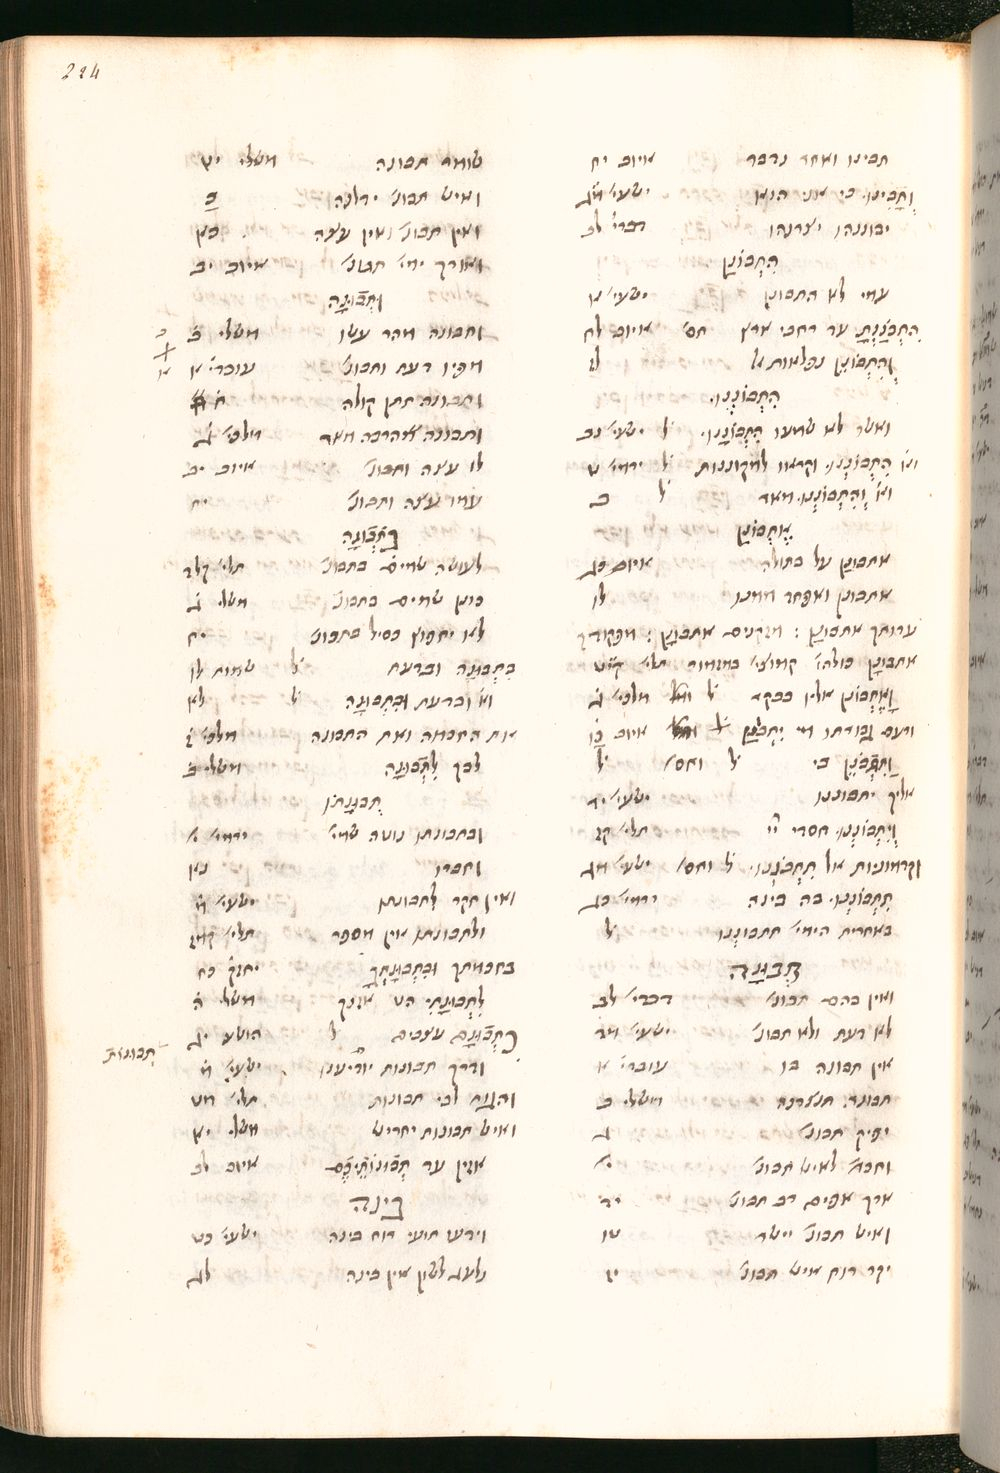 224
תבינו ואחר נדבר איוב יח
וְתָבִינוּ כי אני הוא ישעי׳ מג
יבוננהו יצרנהו דברי׳ לב
הִתְבּוֹנַן
עמי לא התבונן ישעי׳ א
הִתְבֹּנַנְתָּ עד רחבי ארץ חס׳ איוב לח
וְהִתְבּוֹנֵן נפלאות א׳ לז
הִתְבּוֹנְנוּ
ואשר לא שמעו הִתְבּוֹנָנוּ ל׳ ישעי׳ נב
וא׳ הִתְבּוֹנְנוּ וקראו למקוננות ל׳ ירמי׳ ט
וא׳ וְהִתְבּוֹנְנוּ מאד ל׳ ב
אֶתְבּוֹנַן
אתבונן על בתולה איוב לא
אתבונן ואפחד ממנו
עדותך אתבונן : מזקנים אתבונן : מפקודך
אתבונן כולה׳ קמוצי׳ במזמור תלי׳ קי״ט
וָאֶתְבּוֹנֵן אליו בבקר ל׳ מלכי׳ ג
ורעם גבורתו מי יִתְבּוֹנָן איוב כו
וַתִּתְבֹּנֵן בי ל׳ וחס׳ ל׳
אליך יתבוננו ישעי׳ יד
וְיִתְבּוֹנְנוּ חסדי יי׳ תלי׳ קז
וקדמוניות אל תִּתְבֹּנָנוּ ל׳ וחס׳ ישעי׳ מג
תִּתְבּוֹנְנוּ בה בינה ירמי׳ כג
באחרית הימי׳ תתבוננו ל׳
תְּבוּנָה
ואין בהם תבונ׳ דברי׳ לב
לא דעת ולא תבונ׳ ישעי׳ מד
אין תבונה בו עובדי׳ א
תבונה תנצרכה משלי ב
יפיק תבונ׳ ג
וחכמ׳ לאיש תבונ׳ י׳
ארך אפים רב תבונ׳ יד
ואיש תבונ׳ יישר טו
יקר רוח איש תבונ׳ יז
שומר תבונה משלי יט
ואיש תבונ׳ ידלנה כ
ואין תבונ׳ ואין עצה כא
ואורך ימי׳ תבונ׳ איוב יב
וּתְבוּנָה
ותבונה מהר עשו
מפיו דעת ותבונ׳
ותבונה תתן קולה ח
ותבונה הרבה מאד מלכי׳
לו עצה ותבונ׳ איוב יב
עמו עצה ותבונ׳
בִּתְבוּנָה
לעושה שמים בתבונ׳ תלי׳ קלו
כונן שמים בתבונ׳ משלי ג
לא יחפוץ כסיל בתבונ׳ יח
בִּתְבוּנָה ובדעת ל׳ שמות לו
וא׳ ובדעת וּבִתְבוּנָה ל׳ לא
את החכמה ואת התבונה מלכי׳ ז
לבך לַתְּבוּנָה משלי ב
תְּבוּנָתוֹ
ובתבונתו נוטה שמי׳ ירמי׳ י׳
וחברו נא
ואין חקר לתבונתו ישעי׳ מ
ולתבונתו אין מספר תלי׳ קמז
בחכמתך וּבִתְבוּנָתְךָ יחזק׳ כח
לִתְבוּנָתִי הט אזנך משלי ה
כִּתְבוּנָם עצבים ל׳ הושע יג
תבונות
ודרך תבונות יודיענו ישעי׳ מ
והגות לבי תבונות תלי׳ מט
ואיש תבונות יחריש משלי יא
אזין עד תְּבוּנוֹתֵיכֶם איוב לב
בִּינָה
וידעו תועי רוח בינה ישעי׳ כט
נלעג לשון אין בינה לג